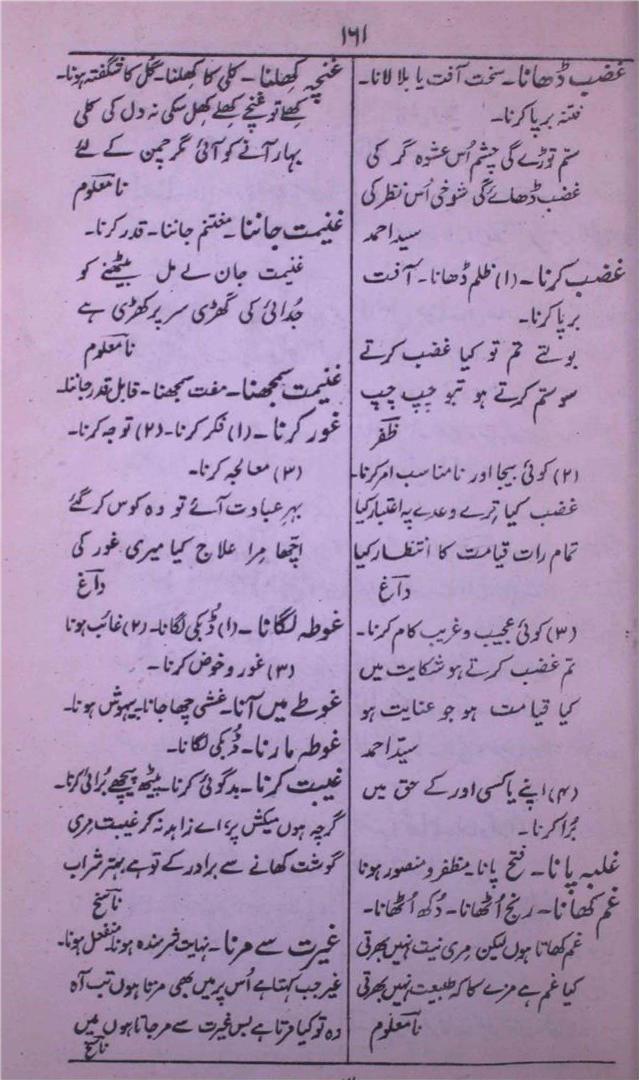 ۱۶۱
غضب ڈھانا۔ سخت آفت یا بلا لانا۔
فتنہ برپا کرنا۔
ستم توڑے گی چشم اُس عشوہ گر کی
غضب ڈھائے گی شوخی اُس نظر کی
سید احمد
غضب کرنا۔ (۱) ظلم ڈھانا۔ آفت
برپا کرنا۔
بولتے تم تو کیا غضب کرتے
سو ستم کرتے ہو تبو چپ چپ
ظفر
(۲) کوئی بیجا اور نامناسب امر کرنا۔
غضب کیا ترے وعدے پہ اعتبار کیا
تمام رات قیامت کا انتظار کیا
داغ
(۳) کوئی عجیب و غریب کام کرنا۔
تم غضب کرتے ہو شکایت میں
کیا قیامت ہو جو عنایت ہو
سیّد احمد
(۴) اپنے یا کسی اور کے حق میں
بُرا کرنا۔
غلبہ پانا۔ فتح پانا مظفر و منصور ہونا
غم کھانا۔ رنج اُٹھانا۔ دُکھ اُٹھانا۔
غم کھاتا ہوں لیکن مری نیت نہیں بھرتی
کیا غم ہے مزے کا کہ طبیعت نہیں بھرتی
نامعلوم
غنچہ کھلنا۔ کلی کا کھلنا۔ گل کا شگفتہ ہونا۔
کھلے تو غنچے کھلے کھل سکی نہ دل کی کلی
بہار آنے کو آئی مگر چمن کے لئے
نامعلوم
غنیمت جاننا۔ مغتنم جاننا۔ قدر کرنا۔
غنیمت جان لے مل بیٹھنے کو
جُدائی کی گھڑی سر پر کھڑی ہے
نامعلوم
غنیمت سمجھنا۔ مفت سمجھنا۔ قابل قدر جاننا۔
غور کرنا۔ (۱) فکر کرنا۔ (۲) توجہ کرنا۔
(۳) معالجہ کرنا۔
بہرِ عیادت آئے تو وہ کوس کر گئے
اچھا مِرا علاج کیا میری غور کی
داغ
غوطہ لگانا۔ (۱) ڈُبکی لگانا۔ (۲) غائب ہونا
(۳) غور و خوض کرنا۔
غوطے میں آنا۔ غشی چھا جانا۔ بیہوش ہونا۔
غوطہ مارنا۔ ڈُبکی لگانا۔
غیبت کرنا۔ بدگوئی کرنا۔ پیٹھ پیچھے بُرائی کرنا۔
گرچہ ہوں میکش پر اے زاہد نہ کر غیبت مری
گوشت کھانے سے برادر کے تو ہے بہتر شراب
ناسخ
غیرت سے مرنا۔ نہایت شرمندہ ہونا۔ منفعل ہونا۔
غیر جب کہتا ہے اُس پر میں بھی مرتا ہوں تب آہ
وہ تو کیا مرتا ہے بس غیرت سے مر جاتا ہوں میں
ناسخ